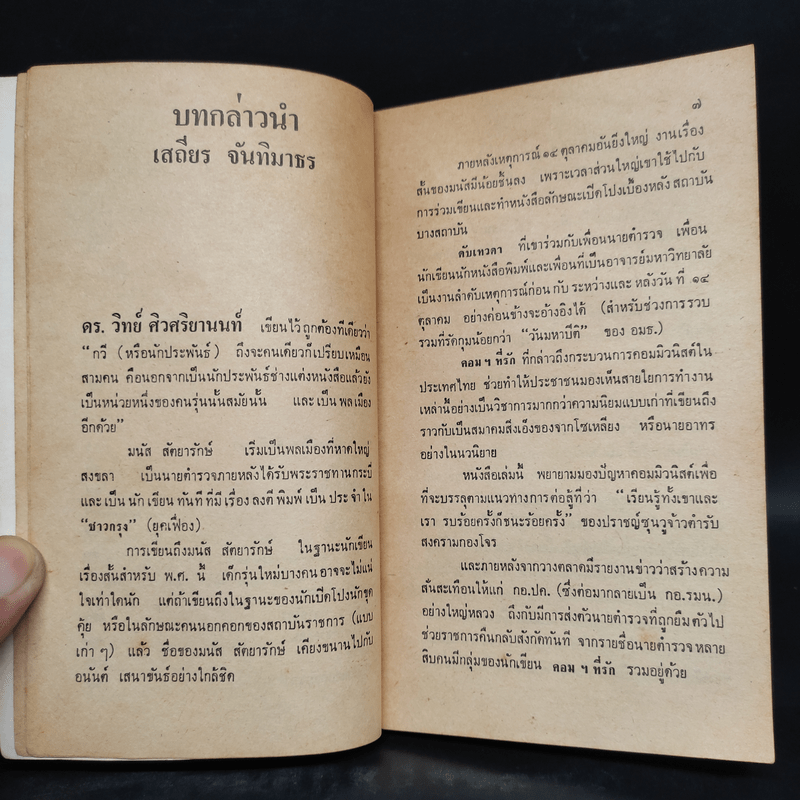 บทกล่าวนำ
เสถียร จันทิมาธร
ดร. วิทย์ ศิวศริยานนท์ เขียนไว้ถูกต้องทีเดียวว่า
“กวี (หรือนักประพันธ์) ถึงจะคนเดียวก็เปรียบเหมือน
สามคน คือนอกจากเป็นนักประพันธ์ช่างแต่งหนังสือแล้วยัง
เป็นหน่วยหนึ่งของคนรุ่นนั้นสมัยนั้น และเป็นพลเมือง
อีกด้วย”
มนัส สัตยารักษ์ เริ่มเป็นพลเมืองที่หาดใหญ่
สงขลา เป็นนายตำรวจภายหลังได้รับพระราชทานกระบี่
และเป็นนักเขียนทันทีที่มีเรื่องลงตีพิมพ์เป็นประจำใน
“ชาวกรุง” (ยุคเฟื่อง)
การเขียนถึงมนัส สัตยารักษ์ ในฐานะนักเขียน
เรื่องสั้นสำหรับ พ.ศ. นี้ เด็กรุ่นใหม่บางคนอาจจะไม่แน่
ใจเท่าใดนัก แต่ถ้าเขียนถึงในฐานะของนักเปิดโปงนักขุด
คุ้ย หรือในลักษณะคนนอกคอกของสถาบันราชการ (แบบ
เก่า ๆ) แล้ว ชื่อของมนัส สัตยารักษ์ เคียงขนานไปกับ
อนันต์ เสนาขันธ์อย่างใกล้ชิด
๗
ภายหลังเหตุการณ์ ๑๔ ตุลาคมอันยิ่งใหญ่ งานเรื่อง
สั้นของมนัสมีน้อยชิ้นลง เพราะเวลาส่วนใหญ่เขาใช้ไปกับ
การร่วมเขียนและทำหนังสือลักษณะเปิดโปงเบื้องหลัง สถาบัน
บางสถาบัน
ดับเทวดา ที่เขาร่วมกับเพื่อนนายตำรวจ เพื่อน
นักเขียนนักหนังสือพิมพ์และเพื่อนที่เป็นอาจารย์มหาวิทยาลัย
เป็นงานลำดับเหตุการณ์ก่อน กับ ระหว่าง และ หลังวัน ที่ ๑๔
ตุลาคม อย่างค่อนข้างจะอ้างอิงได้ (สำหรับช่วงการรวบ
รวมที่รัดกุมน้อยกว่า “วันมหาปิติ” ของ อมธ.)
คอม ฯ ที่รัก ที่กล่าวถึงกระบวนการคอมมิวนิสต์ใน
ประเทศไทย ช่วยทำให้ประชาชนมองเห็นสายใยการทำงาน
เหล่านี้อย่างเป็นวิชาการมากกว่าความนิยมแบบเก่าที่เขียนถึง
ราวกับเป็นสมาคมสิงเอ็งของจากโซเหลียง หรือนายอาทร
อย่างในนวนิยาย
หนังสือเล่มนี้ พยายามมองปัญหาคอมมิวนิสต์เพื่อ
ที่จะบรรลุตามแนวทางการต่อสู้ที่ว่า “เรียนรู้ทั้งเขาและ
เรา รบร้อยครั้งก็ชนะร้อยครั้ง” ของปราชญ์ซุนวูจ้าวตำรับ
สงครามกองโจร
และภายหลังจากวางตลาดมีรายงานข่าวว่าสร้างความ
สั่นสะเทือนให้แก่ กอ.ปค. (ซึ่งต่อมากลายเป็น กอ.รมน.)
อย่างใหญ่หลวง ถึงกับมีการส่งตัวนายตำรวจที่ถูกยืมตัวไป
ช่วยราชการคืนกลับสังกัดทันที จากรายชื่อนายตำรวจหลาย
สิบคนมีกลุ่มของนักเขียน คอม ฯ ที่รัก รวมอยู่ด้วย